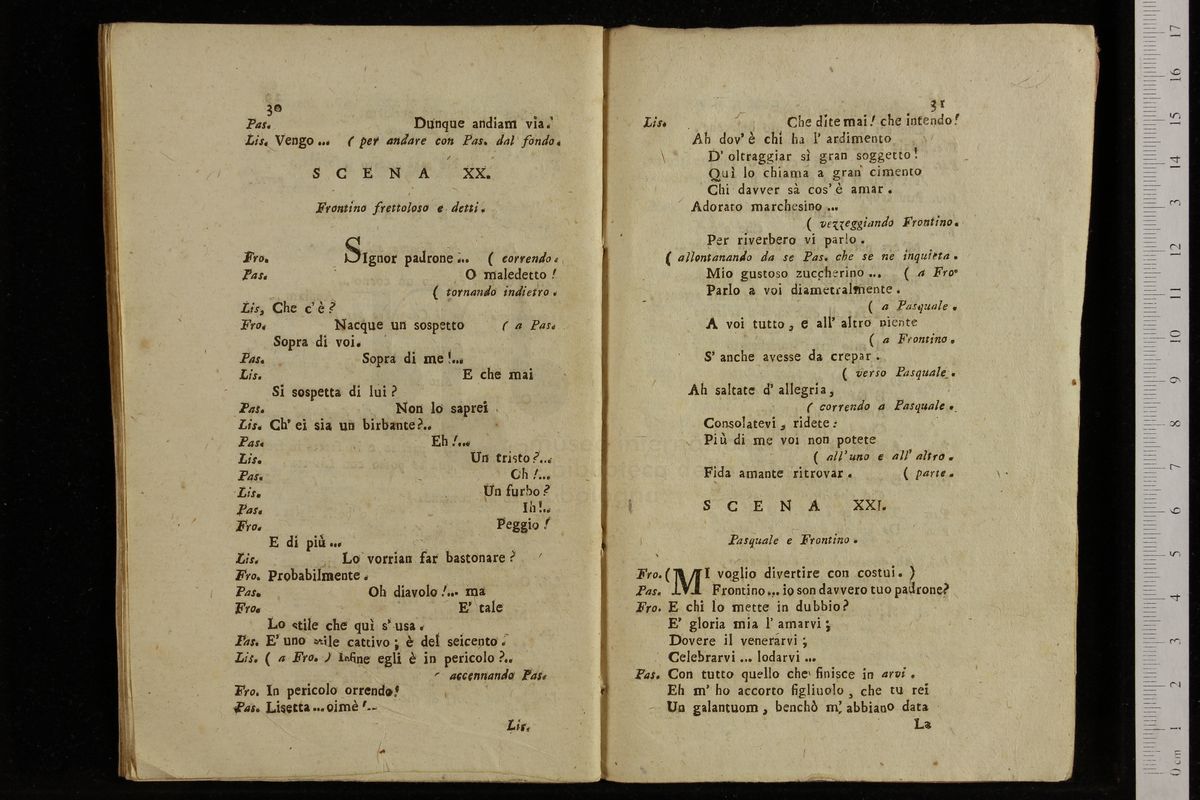 30
Pas. Dunque andiam via.
Lis. Vengo ... ( per andare con Pas. dal fondo.
SCENA XX.
Frontino frettoloso e detti.
Fro. SIgnor padrone ... ( correndo.
Pas. O maledetto!
( tornando indietro.
Lis. Che c'è?
Fro. Nacque un sospetto ( a Pas.
Sopra di voi.
Pas. Sopra di me!...
Lis. E che mai
Si sospetta di lui?
Pas. Non lo saprei
Lis. Ch' ei sia un birbante?..
Pas. Eh!...
Lis. Un tristo?...
Pas. Oh!...
Lis. Un furbo?
Pas. Ih!..
Fro. Peggio!
E di più ...
Lis. Lo vorrian far bastonare?
Fro. Probabilmente.
Pas. Oh diavolo!... ma
Fro. E' tale
Lo stile che quì s' usa.
Pas. E' uno stile cattivo; è del seicento.
Lis. ( a Fro. ) Infine egli è in pericolo?..
( accennando Pas.
Fro. In pericolo orrendo!
Pas. Lisetta ... oimè!..
Lis.
31
Lis. Che dite mai! che intendo!
Ah dov' è chi ha l' ardimento
D' oltraggiar sì gran soggetto!
Quì lo chiama a gran cimento
Chi davver sà cos' è amar.
Adorato marchesino ...
( vezzeggiando Frontino.
Per riverbero vi parlo.
( allontanando da se Pas. che se ne inquieta.
Mio gustoso zuccherino ... ( a Fro.
Parlo a voi diametralmente.
( a Pasquale.
A voi tutto, e all' altro niente
( a Frontino.
S' anche avesse da crepar.
( verso Pasquale.
Ah saltate d' allegria,
( correndo a Pasquale.
Consolatevi, ridete:
Più di me voi non potete
( all' uno e all' altro.
Fida amante ritrovar. ( parte.
SCENA XXI.
Pasquale e Frontino.
Fro. ( MI voglio divertire con costui. )
Pas. Frontino ... io son davvero tuo padrone?
Fro. E chi lo mette in dubbio?
E' gloria mia l' amarvi;
Dovere il venerarvi;
Celebrarvi ... lodarvi ...
Pas. Con tutto quello che finisce in arvi.
Eh m' ho accorto figliuolo, che tu rei
Un galantuom, benchò m' abbiano data
La